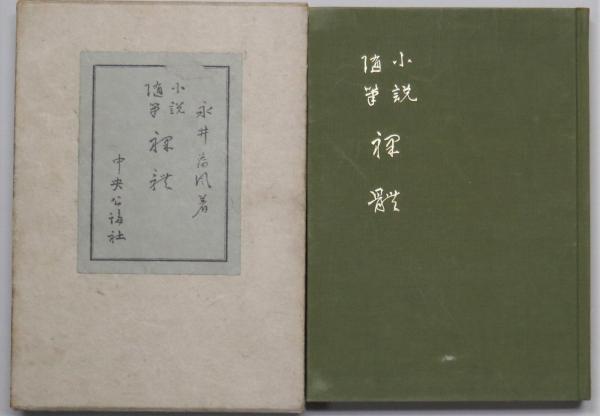 永井荷風著
小説
随筆
裸体
中央公論社
小説
随筆
裸體